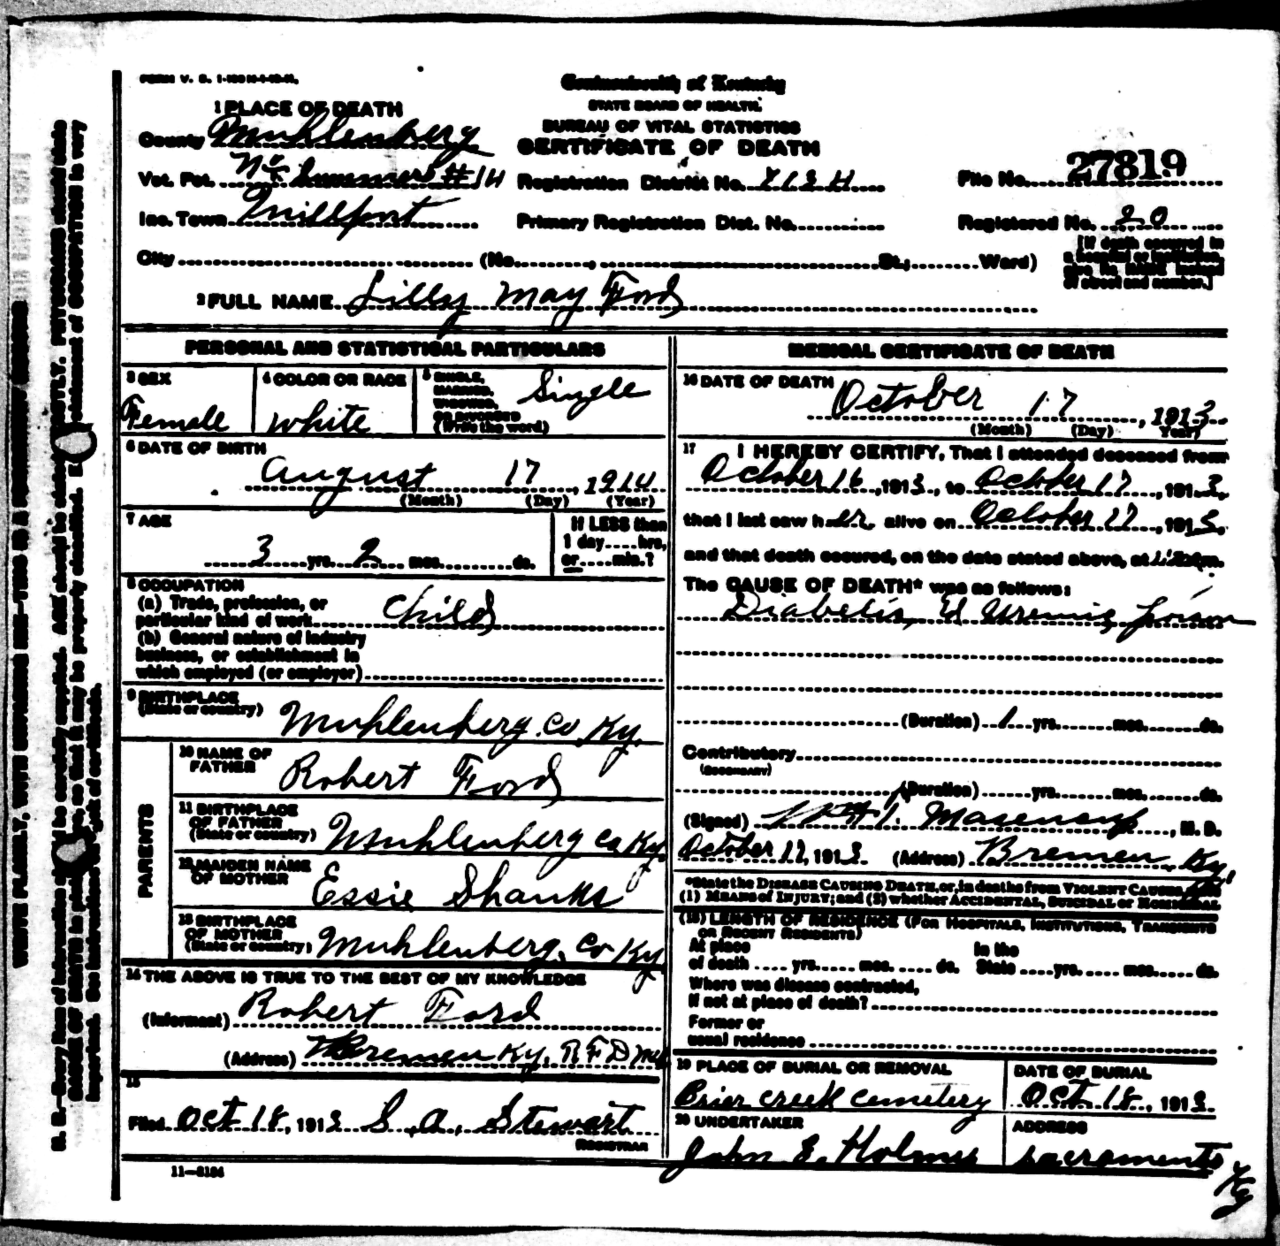 Commonwealth of Kentucky
STATE BOARD OF HEALTH.
BUREAU OF VITAL STATISTICS
CERTIFICATE OF DEATH
1 PLACE OF DEATH
County Muhlenberg
Vot. Pct. # 14
Registration District No.
File No. 27819
Inc. Town Millport
Primary Registration Dist. No.
Registered No. 20
City (No. , St.; Ward)
[If death occurred in
a hospital or institution,
give its NAME instead
of street and number.]
2 FULL NAME Lilly May Ford
PERSONAL AND STATISTICAL PARTICULARS
3 SEX
Female
4 COLOR OR RACE
White
5 SINGLE,
MARRIED,
WIDOWED,
OR DIVORCED
(Write the word)
Single
6 DATE OF BIRTH
August 17, 1914
(Month) (Day) (Year)
7 AGE
3 yrs. 2 mos. ds.
If LESS than
1 day....hrs.
or....min.?
8 OCCUPATION
(a) Trade, profession, or
particular kind of work Child
(b) General nature of industry
business, or establishment in
which employed (or employer)
9 BIRTHPLACE
(State or country) Muhlenberg. Co Ky.
PARENTS
10 NAME OF
FATHER Robert Ford
11 BIRTHPLACE
OF FATHER
(State or country) Muhlenberg Co Ky.
12 MAIDEN NAME
OF MOTHER Essie Shanks
13 BIRTHPLACE
OF MOTHER
(State or country) Muhlenberg. Co Ky
14 THE ABOVE IS TRUE TO THE BEST OF MY KNOWLEDGE
(Informant) Robert Ford
(Address) Bremen Ky, R.F.D
15
Filed Oct 18, 1913 S. A. Stewart
REGISTRAR
11—5184
MEDICAL CERTIFICATE OF DEATH
16 DATE OF DEATH October 17, 1913
(Month) (Day) Year)
17 I HEREBY CERTIFY, That I attended deceased from
October 16, 1913, to October 17, 1913,
that I last saw her alive on October 17, 1913,
and that death occured, on the date stated above, at
The CAUSE OF DEATH* was as follows:
Diabetis, Uremic, Poison
(Duration) 1 yrs. mos. ds.
Contributory
(SECONDARY)
(Duration) yrs. mos. ds.
(Signed) , M. D.
October 17, 1913. (Address) Bremen Ky.
*State the DISEASE CAUSING DEATH, or, in deaths from VIOLENT CAUSES,
(1) MEANS of INJURY; and (2) whether ACCIDENTAL, SUICIDAL or HOMICIDAL
(18) LENGTH OF RESIDENCE (FOR HOSPITALS, INSTITUTIONS, TRANSIENTS
OR RECENT RESIDENTS)
At place
of death ..... yrs..... mos. ..... ds.
In the
State ....yrs..... mos.....ds.
Where was disease contracted,
if not at place of death?
Former or
usual residence
19 PLACE OF BURIAL OR REMOVAL
Brier creek cemetery
DATE OF BURIAL
Oct 18, 1913.
20 UNDERTAKER
John E. Holmes
ADDRESS
Sacramento
Ky